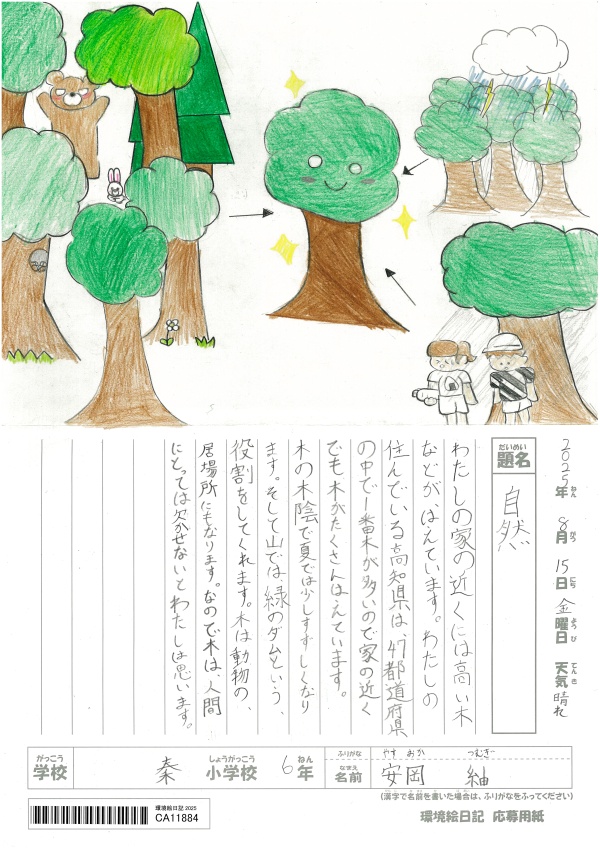 2025年ねん 8月がつ 15日にち 金曜日ようび 天気てんき 晴れ
題名だいめい
自然
わたしの家の近くには高い木
などが、はえています。わたしの
住んでいる高知県は、47都道府県
の中で1番木が多いので家の近く
でも木がたくさんはえています。
木の木陰で夏では少しすずしくなり
ます。そして山では、緑のダムという、
役割をしてくれます。木は動物の、
居場所にもなります。なので木は、人間
にとっては欠かせないとわたしは思います。
がっこう しょうがっこう ねん
学校 秦 小学校 6年
ふりがな やす おか つむぎ
なまえ
名前 安岡 紬
(漢字で名前を書いた場合は、ふりがなをふってください)
環境絵日記 2025
CA11884
環境絵日記 応募用紙